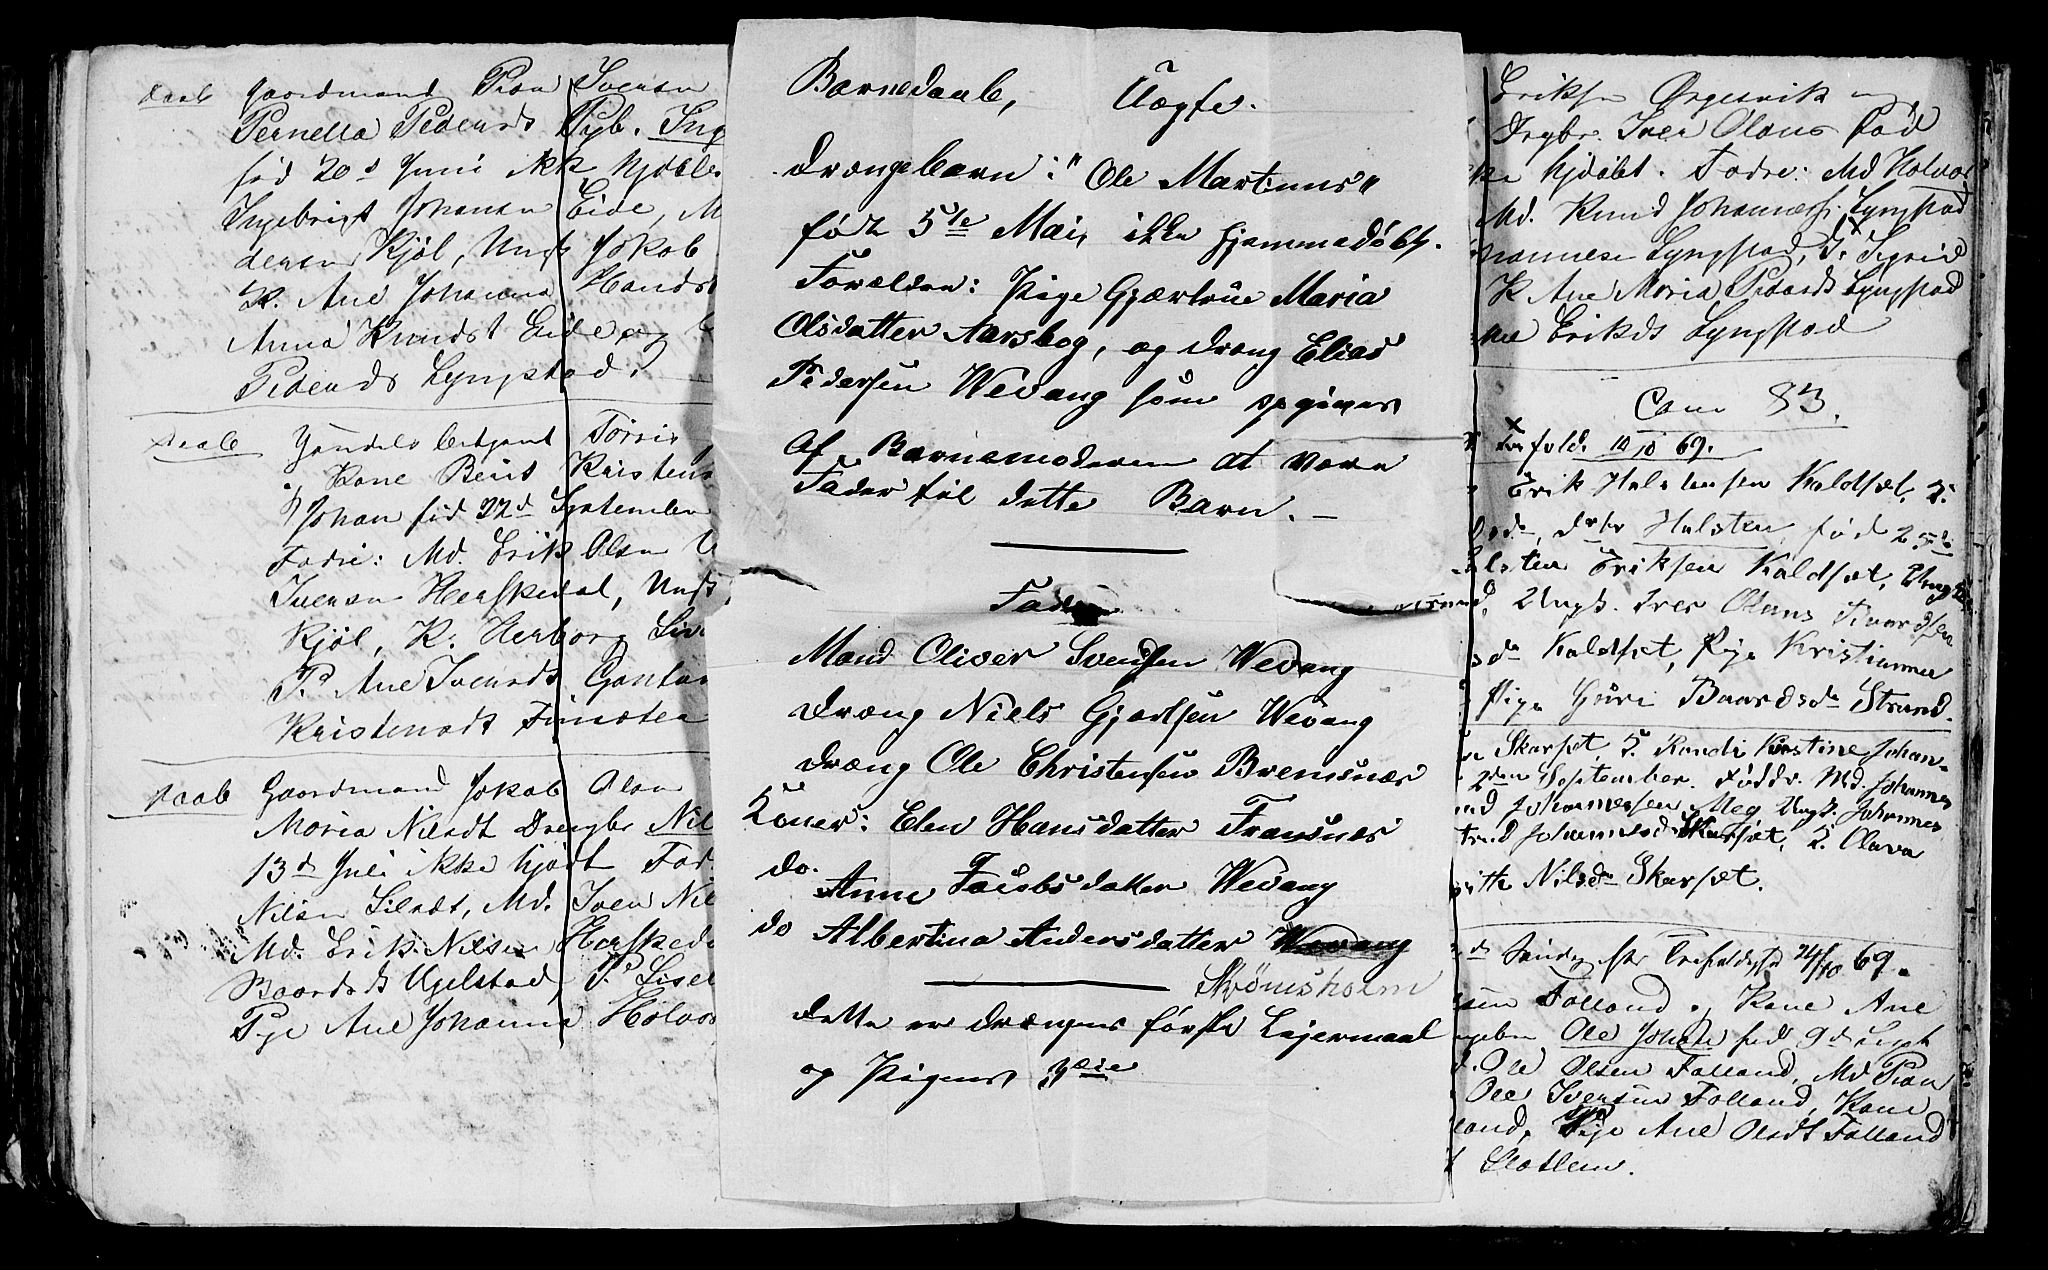 Daab Gaardmand Peter Iversen
Pernella Pedersdt Pigb. Ing
fød 20d Juni ikk hjdbt
Ingebrigt Johansen Eide, M
dersen Kjøl, Ungk Jakob
K. Ane Johanna Hansdt
Anna Knudsdt Eide, og
Pedersdt Lyngstad.
Daab Handels betjent
Kone Berit Kristens
Johan fød 22d September
Fadre: Md. Erik Olsen
Iversen Herskedal, Ungk
Kjøl, K. Herborg
P. Ane Iversdt
Kristensdt
Daab Gaardmand Jakob Olsen
Maria Nilsdt Drengbr Nil
13d Juli ikke hjdbt Fad
Nilsen Md. Iver Nil
Md. Erik Nilsen Herskeda
Baardsdt Ugelstad, P. Lisel
Pige Ane Johanna
Barnedaab, Uægte.
Drængebarn: "Ole Martinus"
født 5te Mai, ikke hjemmedøbt.
Forældre: Pige Gjærtrue Maria
Olsdatter Aarsbog, og dræng Elias
Pedersen Wevang som opgives
af Barnemoderen at være
Fader til dette Barn. —
Faddere
Mand Oliver Svendsen Wevang
dræng Niels Gjertsen Wevang
dræng Ole Christensen Bremsnæs
Koner: Elen Hansdatter Frænsnes
do. Anne Jacobsdatter Wevang
do Albertina Andersdatter Wevang
Strømsholm
dette er drængens første Lejermaal
og Pigens 3die
Eriksen Ørgesvik og
Drgbr. Iver Olaus fød
ke hjdøbt. Fadre: Md Halvor
Md. Knud Johanness. Lyngstad
hannesen Lyngstad, P. Sigrid
K Ane Maria Pedersdt Lyngstad
ne Eriksdt Lyngstad
Com 83.
Trefold. 10/10 69.
Erik Halstensen Kaldset,
sda, drbr Halsten, fød 25de
alsten Eriksen Kaldset, Ungk
Ungk. Iver Olaus Knardsen
sda Kaldset, Pige Kristianne
Pige Guri Baardsda Strand.
Skarset, Randi Kirstine Johan-
2den September. Faddr. Md. Johannes
nd Johannessen Meg Ungk. Johannes
trud Johannesd Skarset, Olava
gitte Nilsda Skarset.
Søndag efter Trefoldighed 24/10 69.
Folland og Kone Ane
ngebn Ole Johan fød 9d Sept
d. Ole Olsen Folland, Md
Ole Iversen Folland, Kone
land, Pige Ane Olsdt Folland
Slatlem.